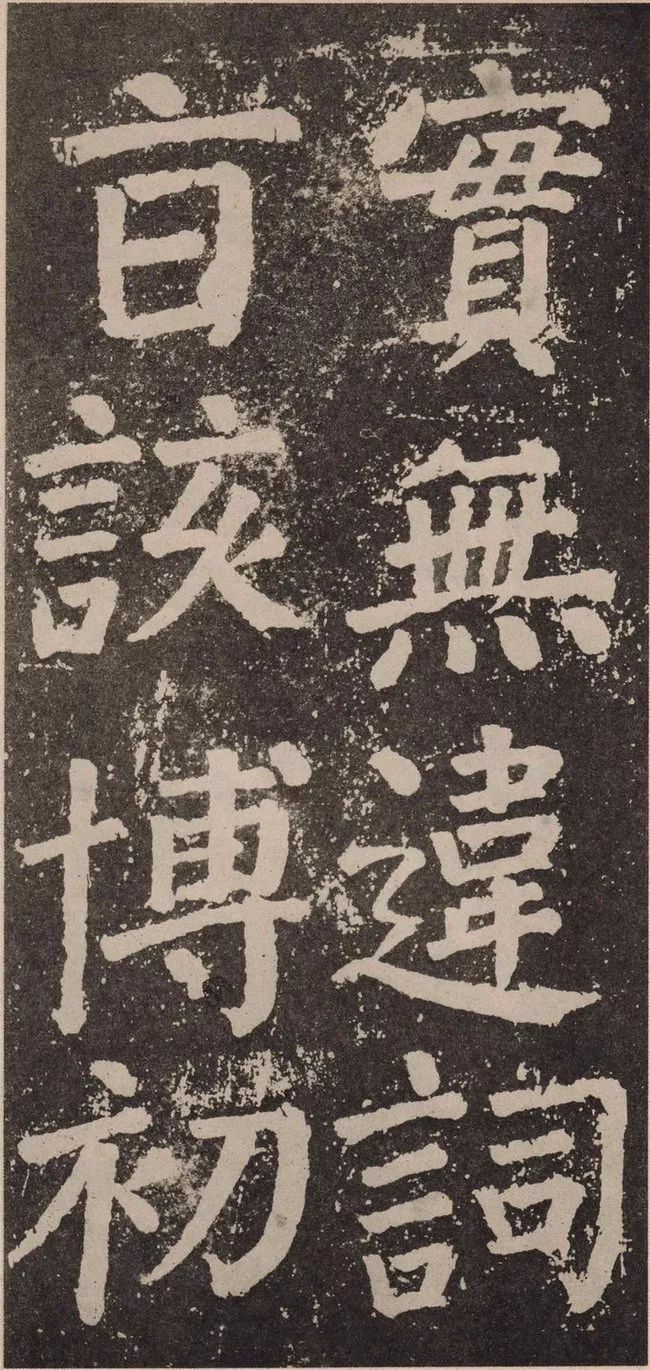 實無違詞
旨該博初